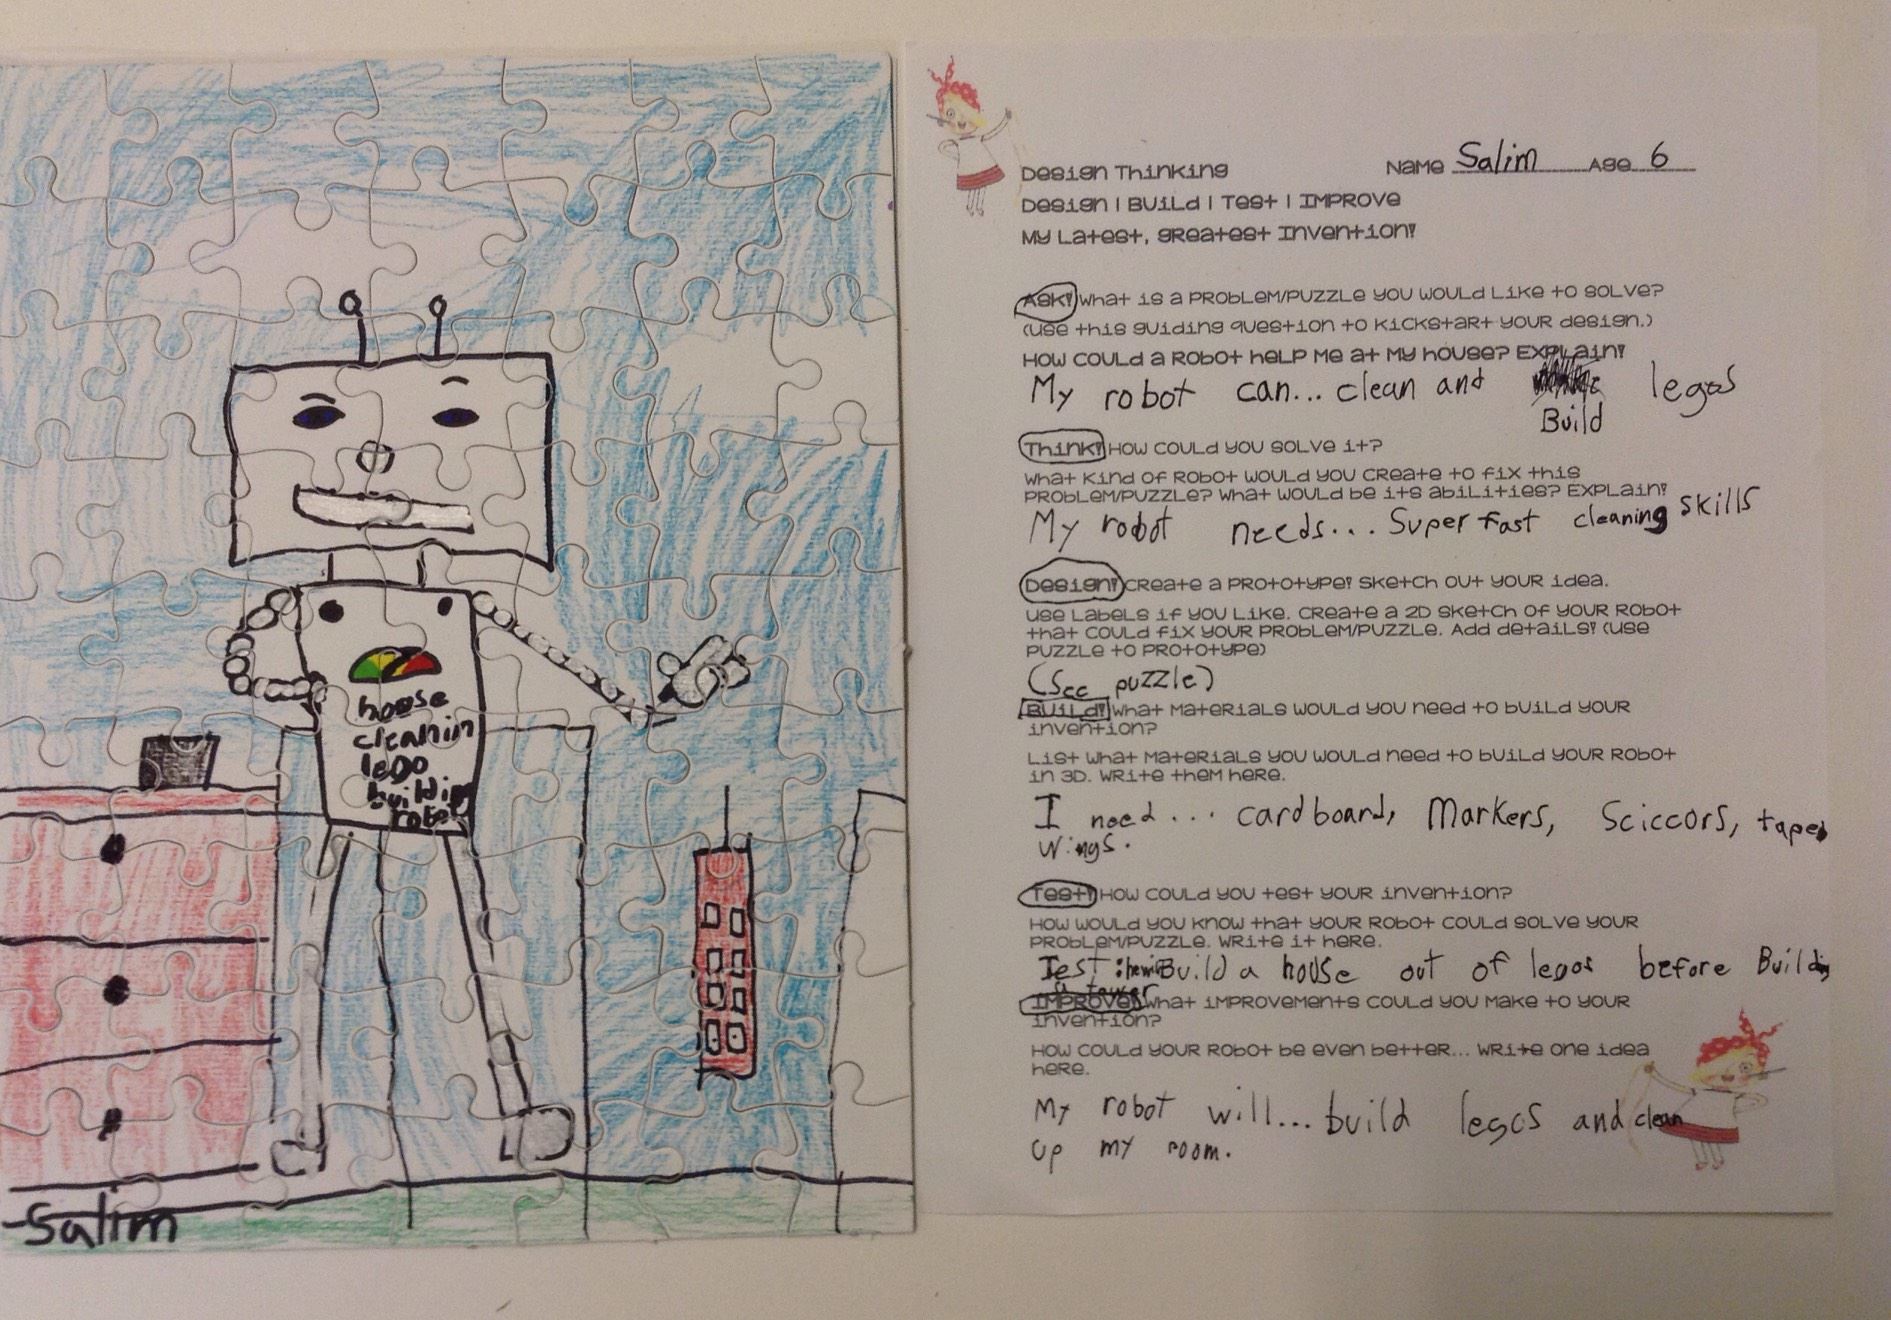 house
cleanin
lego
buildin
robot
Salim
Design Thinking
Name Salim Age 6
Design | Build | Test | Improve
My Latest, greatest Invention!
Ask! What is a problem/puzzle you would like to solve?
(Use this guiding question to kickstart your design.)
How could a robot help me at my house? Explain!
My robot can... clean and legos
Build
Think! How could you solve it?
What kind of robot would you create to fix this
problem/puzzle? What would be its abilities? Explain!
My robot needs... Super fast cleaning skills
Design! Create a prototype! Sketch out your idea.
Use labels if you like. Create a 2D sketch of your robot
that could fix your problem/puzzle. Add details! (Use
puzzle to prototype)
(See puzzle)
Build! What materials would you need to build your
invention?
List what materials you would need to build your robot
in 3D. Write them here.
I need... cardboard, Markers, Sciccors, tape,
wings.
Test! How could you test your invention?
How would you know that your robot could solve your
problem/puzzle. Write it here.
Test: Build a house out of legos before Building
a tower
Improve! What improvements could you make to your
invention?
How could your robot be even better... Write one idea
here.
My robot will... build legos and clean
up my room.